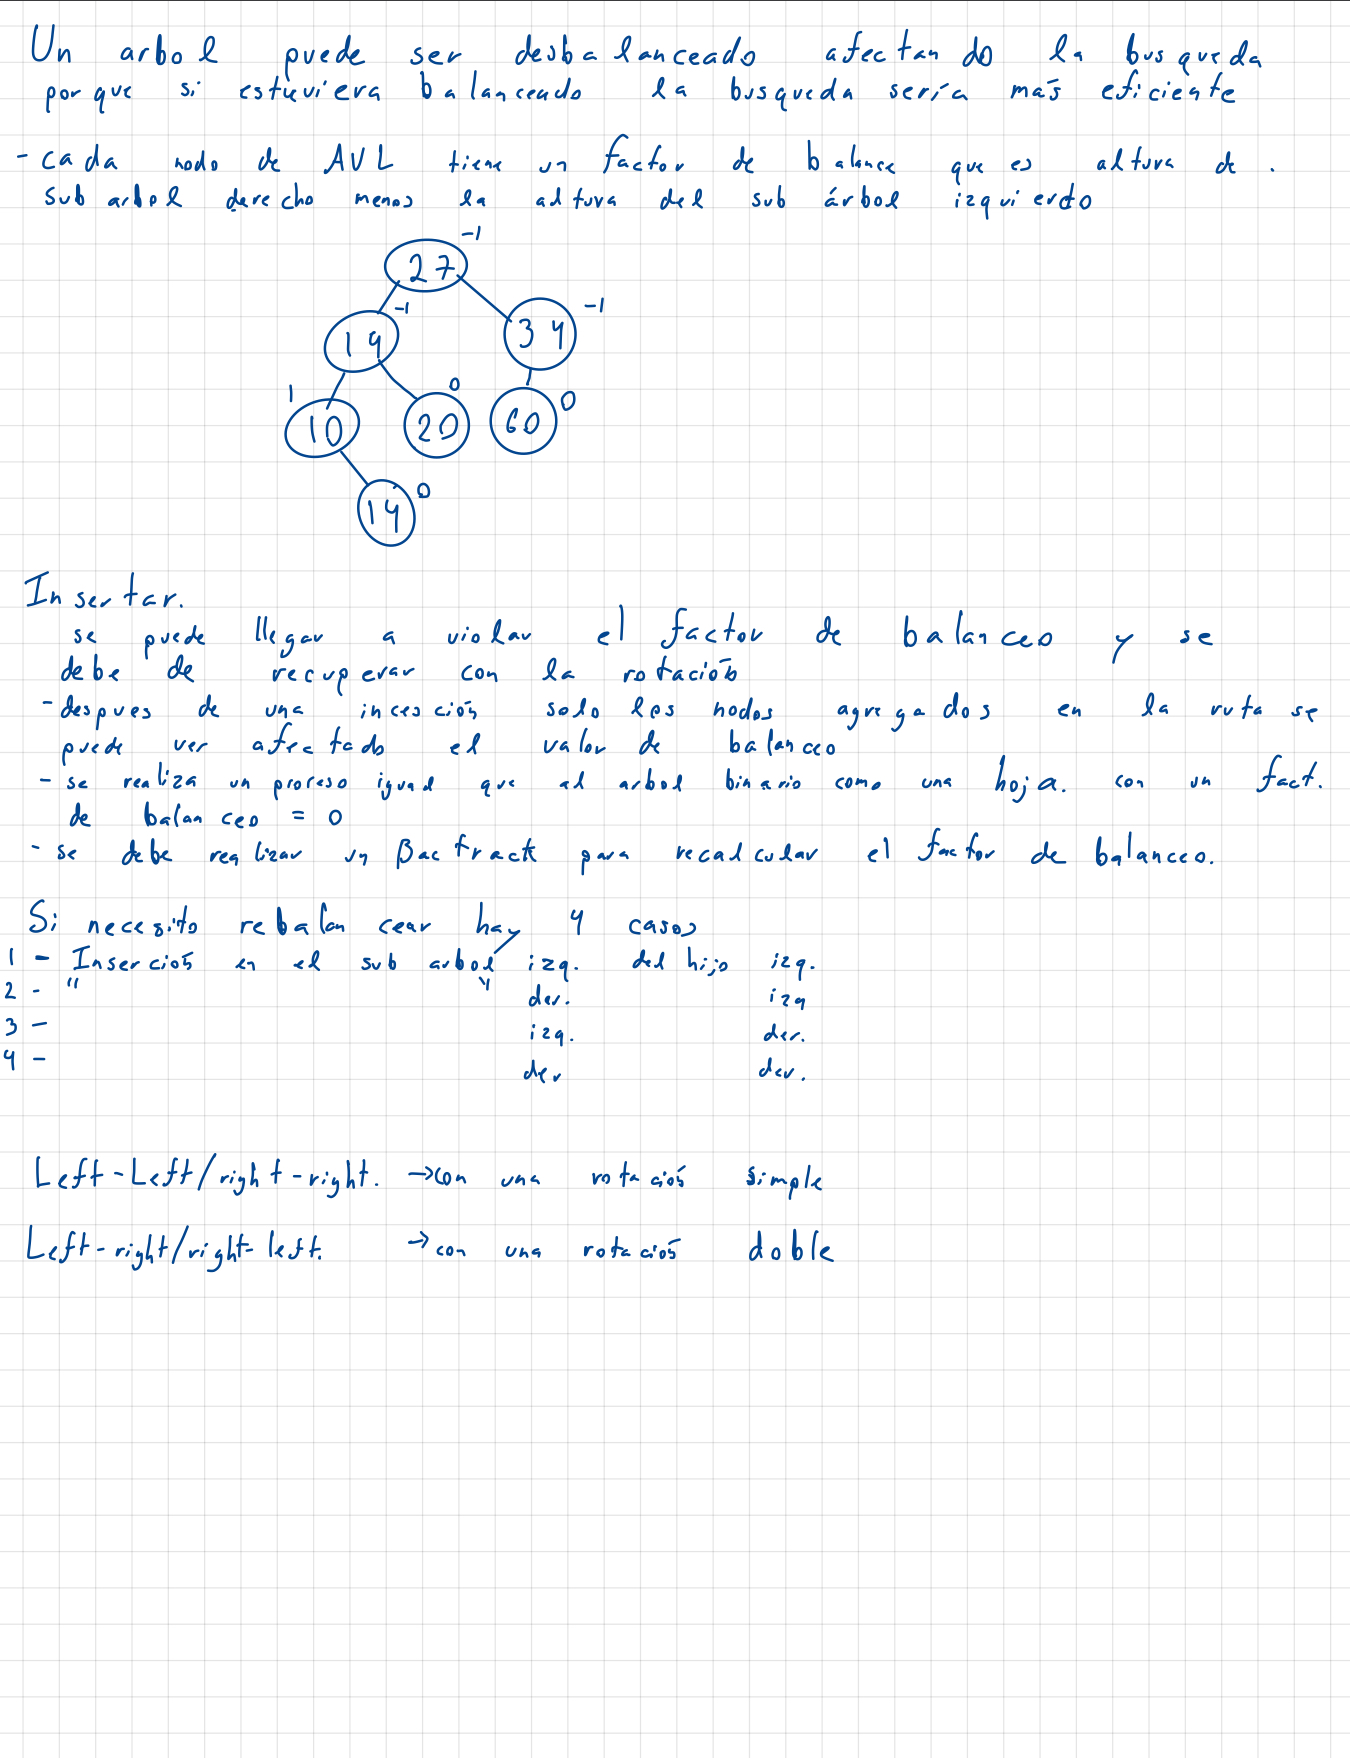 Un arbol puede ser desbalanceado afectando la busqueda
porque si estuviera balanceado la busqueda sería más eficiente
- cada nodo de AVL tiene un factor de balance que es altura de .
sub arbol derecho menos la altura del sub árbol izquierdo
-1
27
-1
-1
19
34
1
0
0
10
20
60
0
14
Insertar.
se puede llegar a violar el factor de balanceo y se
debe de recuperar con la rotación
- despues de una inceción solo los nodos agregados en la ruta se
puede ver afectado el valor de balanceo
- se realiza un proceso igual que al arbol binario como una hoja. con un fact.
de balanceo = 0
- se debe realizar un Bactrack para recalcular el factor de balanceo.
Si necesito rebalancear hay 4 casos
1 - Inserción en el sub arbol izq. del hijo izq.
2 - " " der. izq
3 - izq. der.
4 - der der.
Left-Left/right-right. →con una rotación simple
Left-right/right-left. →con una rotación doble